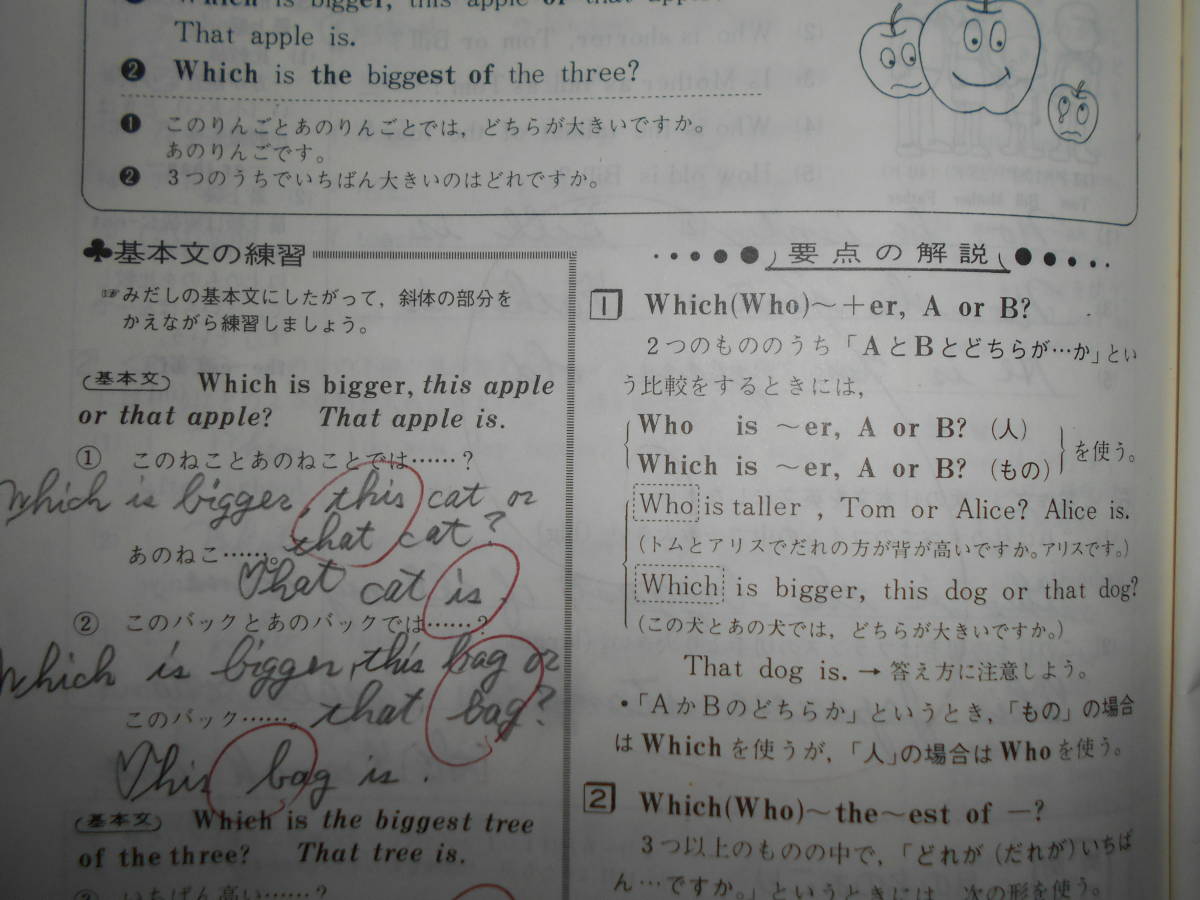 Which is bigger, this apple or that apple?
That apple is.
❷ Which is the biggest of the three?
❶ このりんごとあのりんごとでは，どちらが大きいですか。
あのりんごです。
❷ 3つのうちでいちばん大きいのはどれですか。
♣基本文の練習
☞みだしの基本文にしたがって，斜体の部分を
かえながら練習しましょう。
基本文 Which is bigger, this apple
or that apple? That apple is.
① このねことあのねことでは……？
Which is bigger, this cat or
that cat?
あのねこ……。
That cat is.
② このバックとあのバックでは……？
Which is bigger, this bag or
that bag?
このバック……。
This bag is.
基本文 Which is the biggest tree
of the three? That tree is.
いちばん高い……？
要点の解説
1 Which(Who)～＋er, A or B?
2つのもののうち「AとBとどちらが…か」とい
う比較をするときには，
Who is ～er, A or B? (人)
Which is ～er, A or B? (もの)
を使う。
Who is taller , Tom or Alice? Alice is.
(トムとアリスでだれの方が背が高いですか。アリスです。)
Which is bigger, this dog or that dog?
(この犬とあの犬では，どちらが大きいですか。)
That dog is. → 答え方に注意しよう。
・「AかBのどちらか」というとき，「もの」の場合
はWhichを使うが，「人」の場合はWhoを使う。
2 Which(Who)～the～est of －?
3つ以上のものの中で，「どれが(だれが)いちば
ん…ですか。」というときには，次の形を使う。